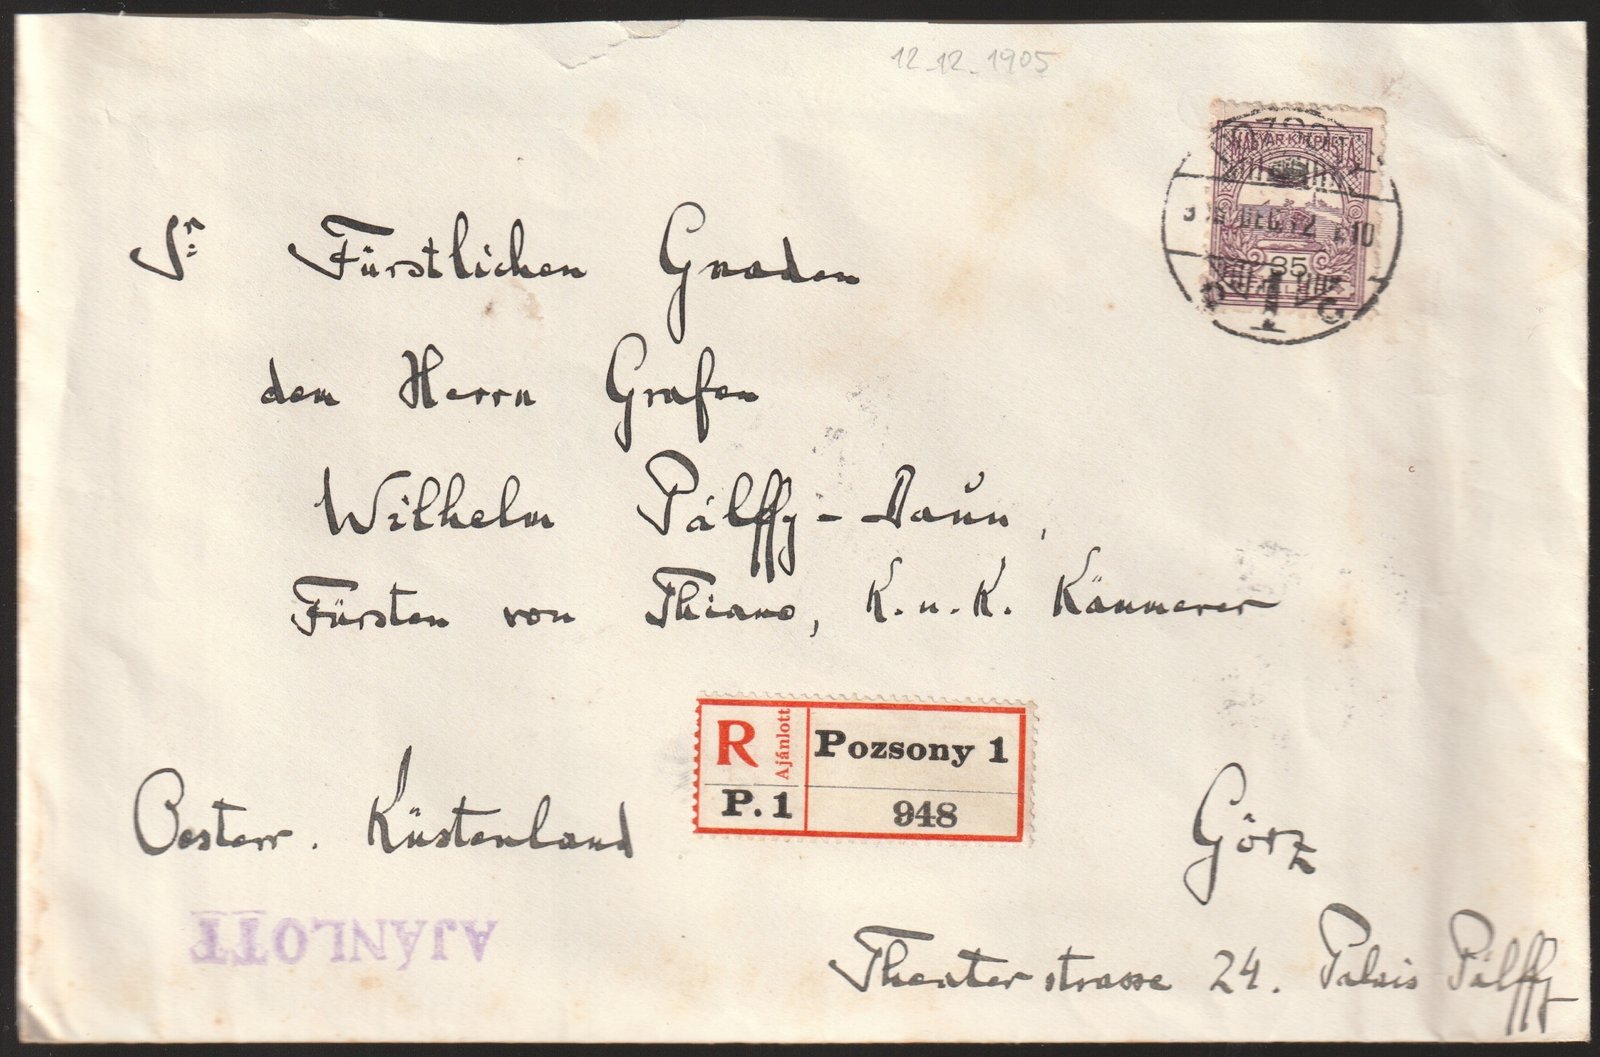 12.12.1905
MAGYAR KIR. POSTA
DEC. 12
35
Sr. Fürstlichen Gnaden
den Herrn Grafen
Wilhelm Pálffy-Daun,
Fürsten von Thiano, K. u. K. Kämmerer
R Ajánlott Pozsony 1
P. 1 948
Oesterr. Küstenland Görz
AJÁNLOTT
Theaterstrasse 24. Palais Pálffy